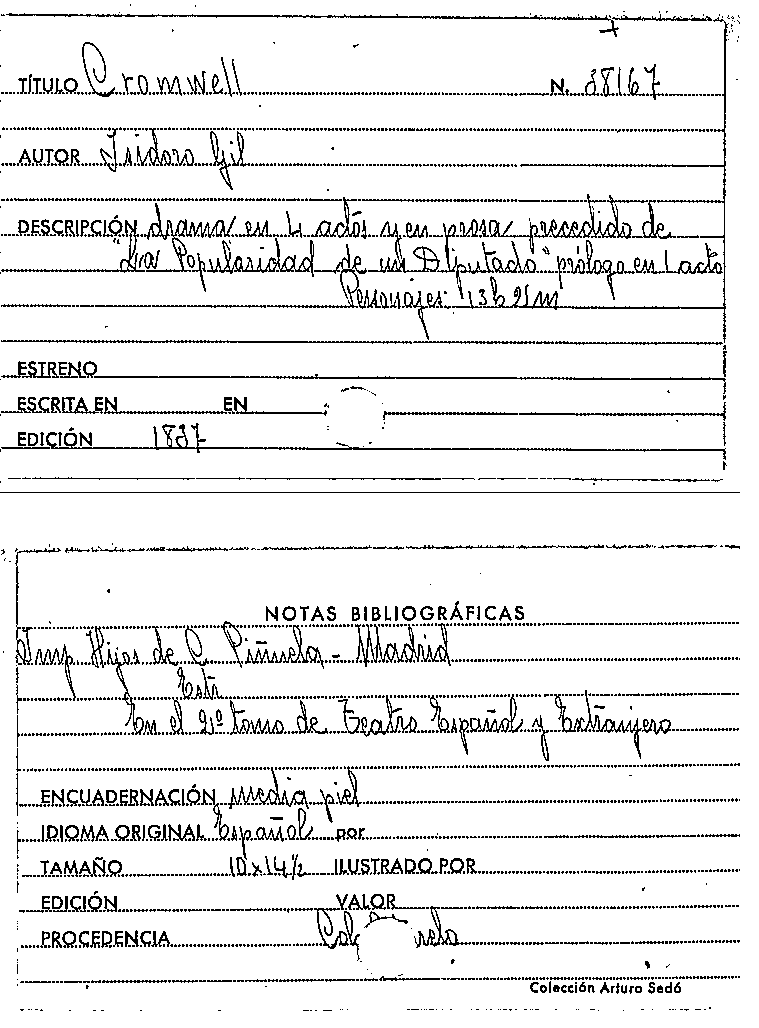 TÍTULO Cromwell N. 38167
AUTOR Isidoro Gil
DESCRIPCIÓN drama en 4 actos y en prosa precedido de
"La Popularidad de un Diputado" prólogo en 1 acto
Personajes: 13h 2m
ESTRENO
ESCRITA EN EN
EDICIÓN 1837
NOTAS BIBLIOGRÁFICAS
Imp Hijos de C. Piñuela - Madrid
Estr
En el 2º tomo de Teatro Español y Extranjero
ENCUADERNACIÓN media piel
IDIOMA ORIGINAL Español por
TAMAÑO 10x14½ ILUSTRADO POR
EDICIÓN VALOR
PROCEDENCIA
Colección Arturo Sedó